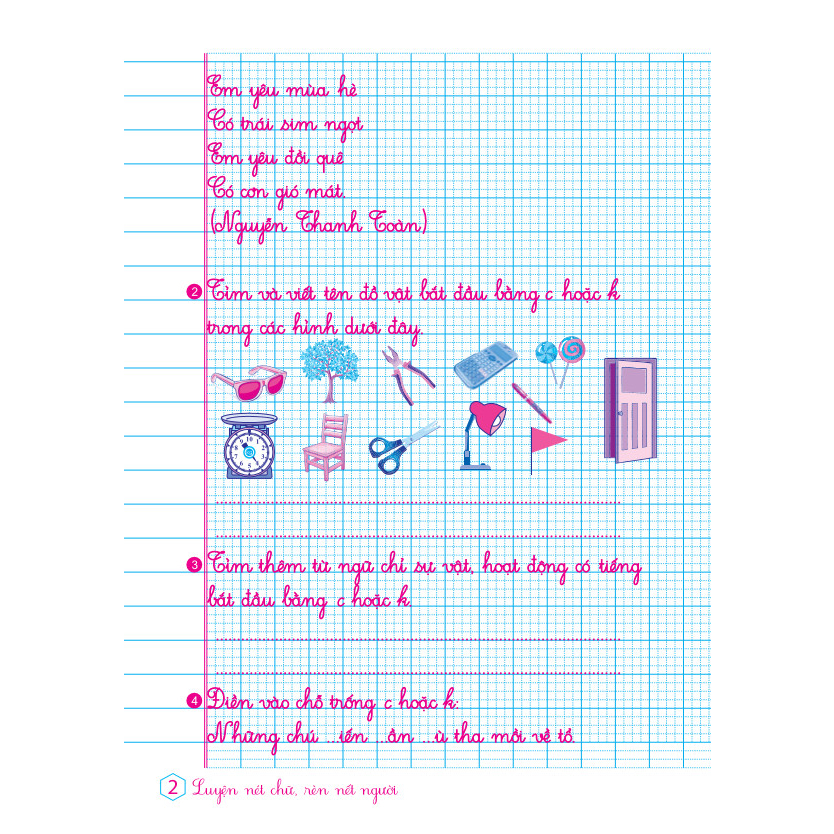 Em yêu mùa hè
Có trái sim ngọt
Em yêu đồi quê
Có cơn gió mát.
(Nguyễn Thanh Toàn)
2 Tìm và viết tên đồ vật bắt đầu bằng c hoặc k
trong các hình dưới đây.
9 10 2 8 3 7 4 6 5
3 Tìm thêm từ ngữ chỉ sự vật, hoạt động có tiếng
bắt đầu bằng c hoặc k.
4 Điền vào chỗ trống c hoặc k:
Những chú ...iến ...ần ...ù tha mồi về tổ.
2 Luyện nét chữ, rèn nết người